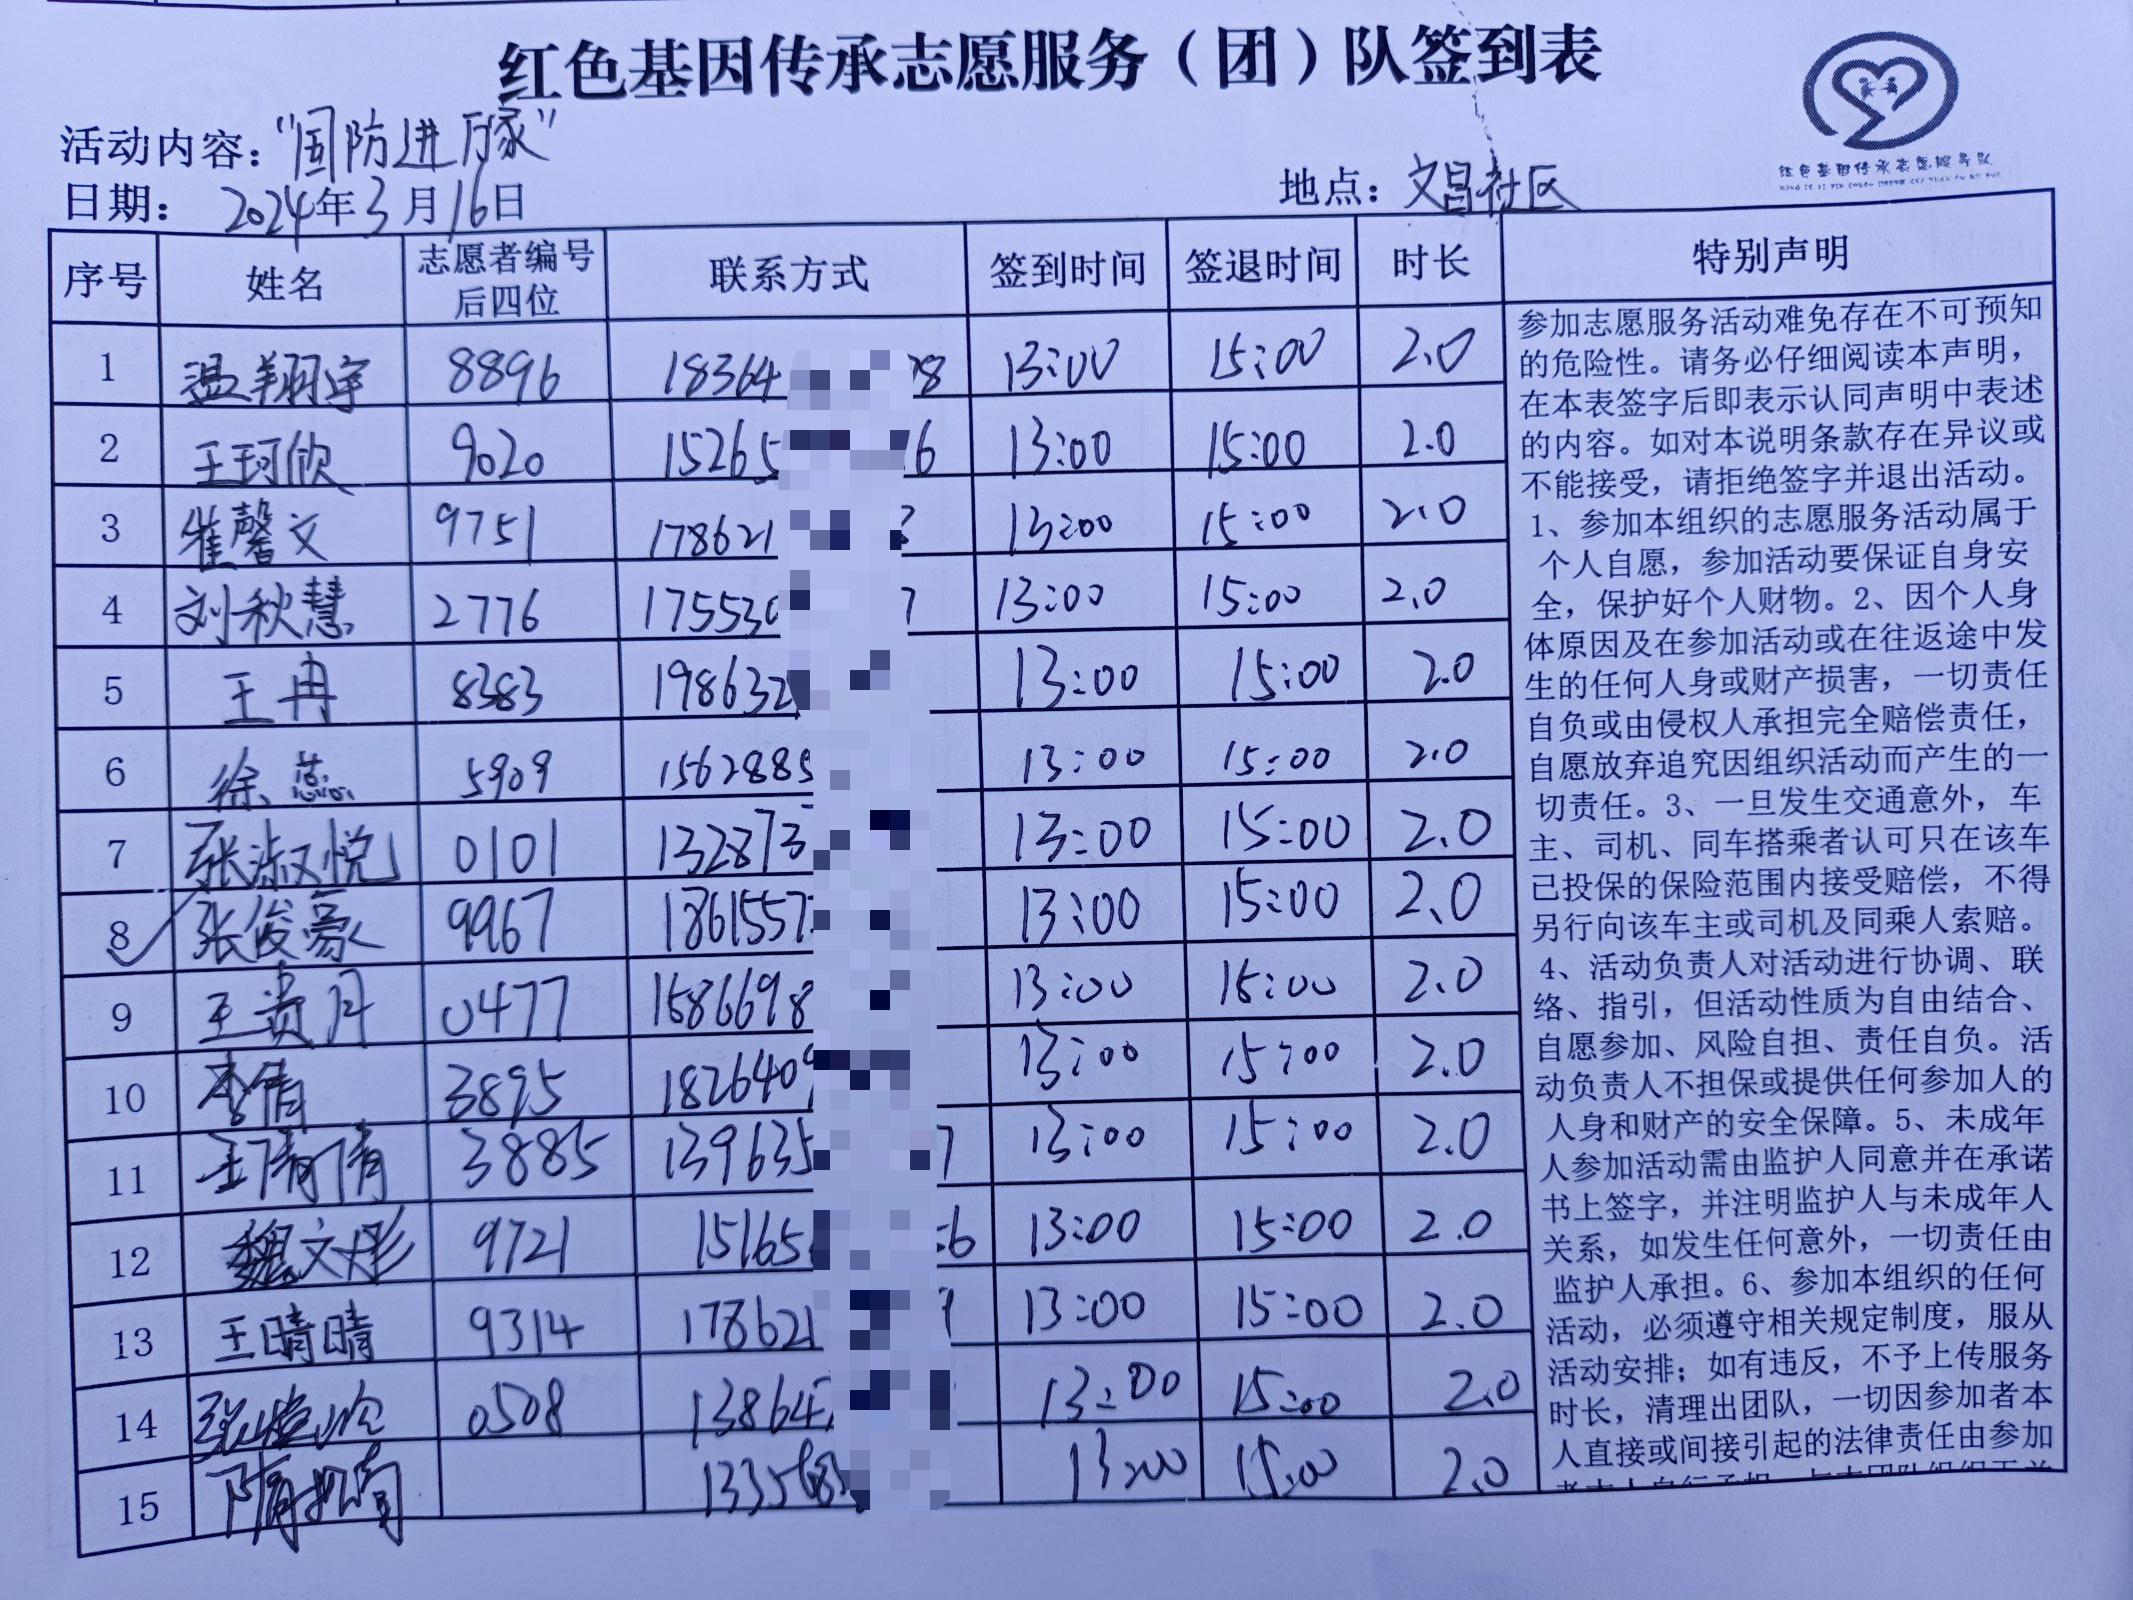 红色基因传承志愿服务（团）队签到表
红色基因传承志愿服务队
活动内容：“国防进万家”
日期： 2024年3月16日 地点：文昌社区
序号 姓名 志愿者编号后四位 联系方式 签到时间 签退时间 时长 特别声明
1 温翔宇 8896 18364 78 13:00 15:00 2.0
2 王珂欣 9020 15265 16 13:00 15:00 2.0
3 崔馨文 9751 178621 13:00 15:00 2.0
4 刘秋慧 2776 175530 7 13:00 15:00 2.0
5 王冉 8383 198632 13:00 15:00 2.0
6 徐蕊 5909 1562885 13:00 15:00 2.0
7 张淑悦 0101 132873 13:00 15:00 2.0
8 张俊豪 9967 1861557 13:00 15:00 2.0
9 王贵月 0477 1586698 13:00 15:00 2.0
10 李倩 3895 1826409 13:00 15:00 2.0
11 王倩倩 3885 139635 7 13:00 15:00 2.0
12 魏文彤 9721 15165 6 13:00 15:00 2.0
13 王晴晴 9314 178621 13:00 15:00 2.0
14 0508 13864 13:00 15:00 2.0
15 13:00 15:00 2.0
参加志愿服务活动难免存在不可预知
的危险性。请务必仔细阅读本声明，
在本表签字后即表示认同声明中表述
的内容。如对本说明条款存在异议或
不能接受，请拒绝签字并退出活动。
1、参加本组织的志愿服务活动属于
个人自愿，参加活动要保证自身安
全，保护好个人财物。2、因个人身
体原因及在参加活动或在往返途中发
生的任何人身或财产损害，一切责任
自负或由侵权人承担完全赔偿责任，
自愿放弃追究因组织活动而产生的一
切责任。3、一旦发生交通意外，车
主、司机、同车搭乘者认可只在该车
已投保的保险范围内接受赔偿，不得
另行向该车主或司机及同乘人索赔。
4、活动负责人对活动进行协调、联
络、指引，但活动性质为自由结合、
自愿参加、风险自担、责任自负。活
动负责人不担保或提供任何参加人的
人身和财产的安全保障。5、未成年
人参加活动需由监护人同意并在承诺
书上签字，并注明监护人与未成年人
关系，如发生任何意外，一切责任由
监护人承担。6、参加本组织的任何
活动，必须遵守相关规定制度，服从
活动安排；如有违反，不予上传服务
时长，清理出团队，一切因参加者本
人直接或间接引起的法律责任由参加